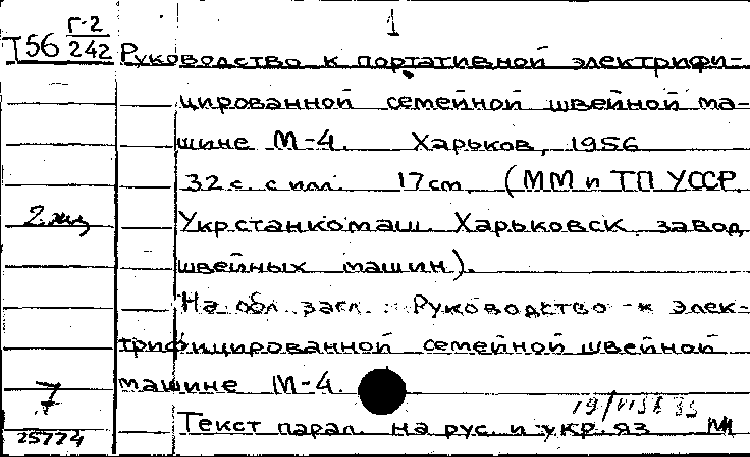 1
Т56 Г-2
242
Руководство к портативной электрифи-
цированной семейной швейной ма-
шине М-4. Харьков, 1956
32 с. с илл. 17 cm. (ММ и ТП УССР.
2 экз
Укрстанкомаш. Харьковск. завод
швейных машин).
На обл. загл.: Руководство к элек-
трифицированной семейной швейной
машине М-4.
Текст парал. на рус. и укр. яз
25774